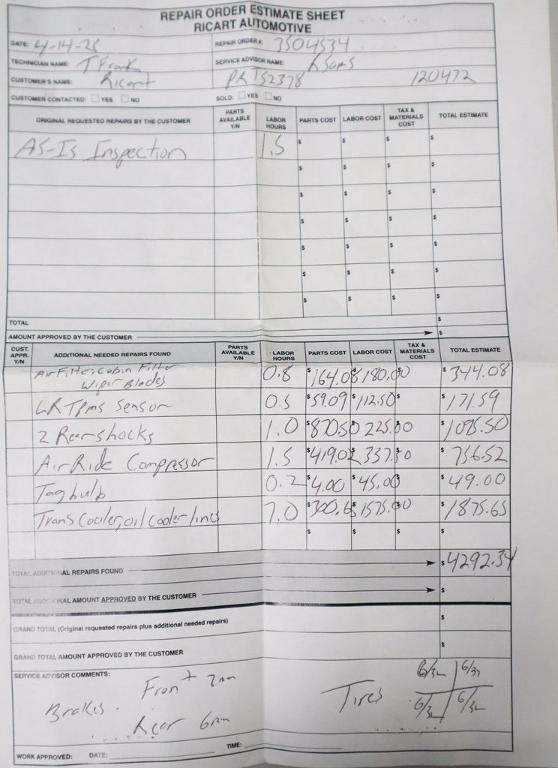 REPAIR ORDER ESTIMATE SHEET
RICART AUTOMOTIVE
DATE: 4-14-25 REPAIR ORDER #: 3504534
TECHNICIAN NAME: T Frank SERVICE ADVISOR NAME:
CUSTOMER'S NAME: Ricart PRT52378 120472
CUSTOMER CONTACTED: YES NO SOLD: YES NO
ORIGINAL REQUESTED REPAIRS BY THE CUSTOMER PARTS AVAILABLE Y/N LABOR HOURS PARTS COST LABOR COST TAX & MATERIALS COST TOTAL ESTIMATE
AS-Is Inspection 1.5 $ $ $ $
$ $ $ $
$ $ $ $
$ $ $ $
$ $ $ $
$ $ $ $
$ $ $ $
TOTAL $
AMOUNT APPROVED BY THE CUSTOMER $
CUST. APPR. Y/N ADDITIONAL NEEDED REPAIRS FOUND PARTS AVAILABLE Y/N LABOR HOURS PARTS COST LABOR COST TAX & MATERIALS COST TOTAL ESTIMATE
Air Filter, Cabin Filter
Wiper Blades 0.8 $164.08 $180.00 $344.08
LR TPms Sensor 0.5 $59.09 $112.50 $171.59
2 Rear shocks 1.0 $870.50 225.00 $1095.50
Air Ride Compressor 1.5 $419.02 337.50 $756.52
Tag bulb 0.2 $4.00 $45.00 $49.00
Trans Cooler, oil/cooler lines 7.0 $300.65 $1575.00 $1875.65
$ $ $ $
TOTAL ADDITIONAL REPAIRS FOUND $4292.34
TOTAL ADDITIONAL AMOUNT APPROVED BY THE CUSTOMER $
GRAND TOTAL (Original requested repairs plus additional needed repairs) $
GRAND TOTAL AMOUNT APPROVED BY THE CUSTOMER $
SERVICE ADVISOR COMMENTS:
Brakes. Front 7mm
Rear 6mm
Tires 6/32 6/32
6/32 6/32
WORK APPROVED: DATE: TIME: